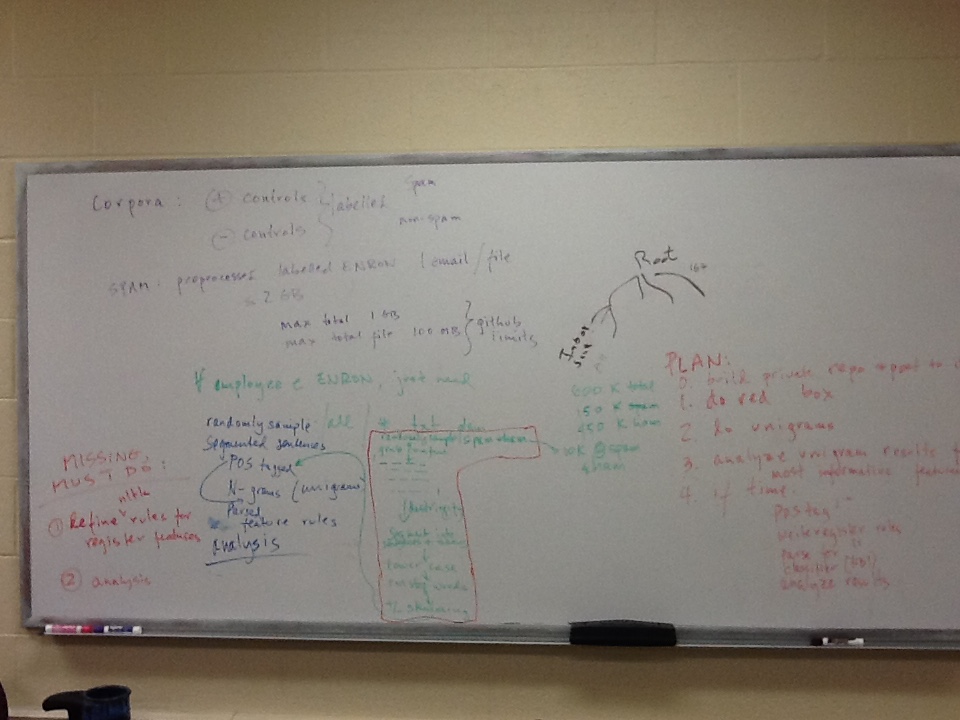 Corpora: + controls } labelled spam
- controls non-spam
SPAM: preprocesses labelled ENRON 1 email/file
≤ 2 GB
max total 1 GB
max total file 100 MB } github limits
Root
∀ employee ∈ ENRON, just
randomly sample
Segmented sentences
POS tagged
N-grams (unigrams)
Parsed
feature rules
analysis
MISSING,
MUST DO:
nltk
① Refine rules for
register features
② analysis
* txt
randomly sample spam ham
Segment into
lower case
% stemming
600 K total
150 K spam
450 K ham
spam
ham
PLAN:
0. build private repo export to
1. do red box
2. do unigrams
3. analyze unigram results
most informative features
4. if time:
pos tag
write register rules
parse for
analyze results